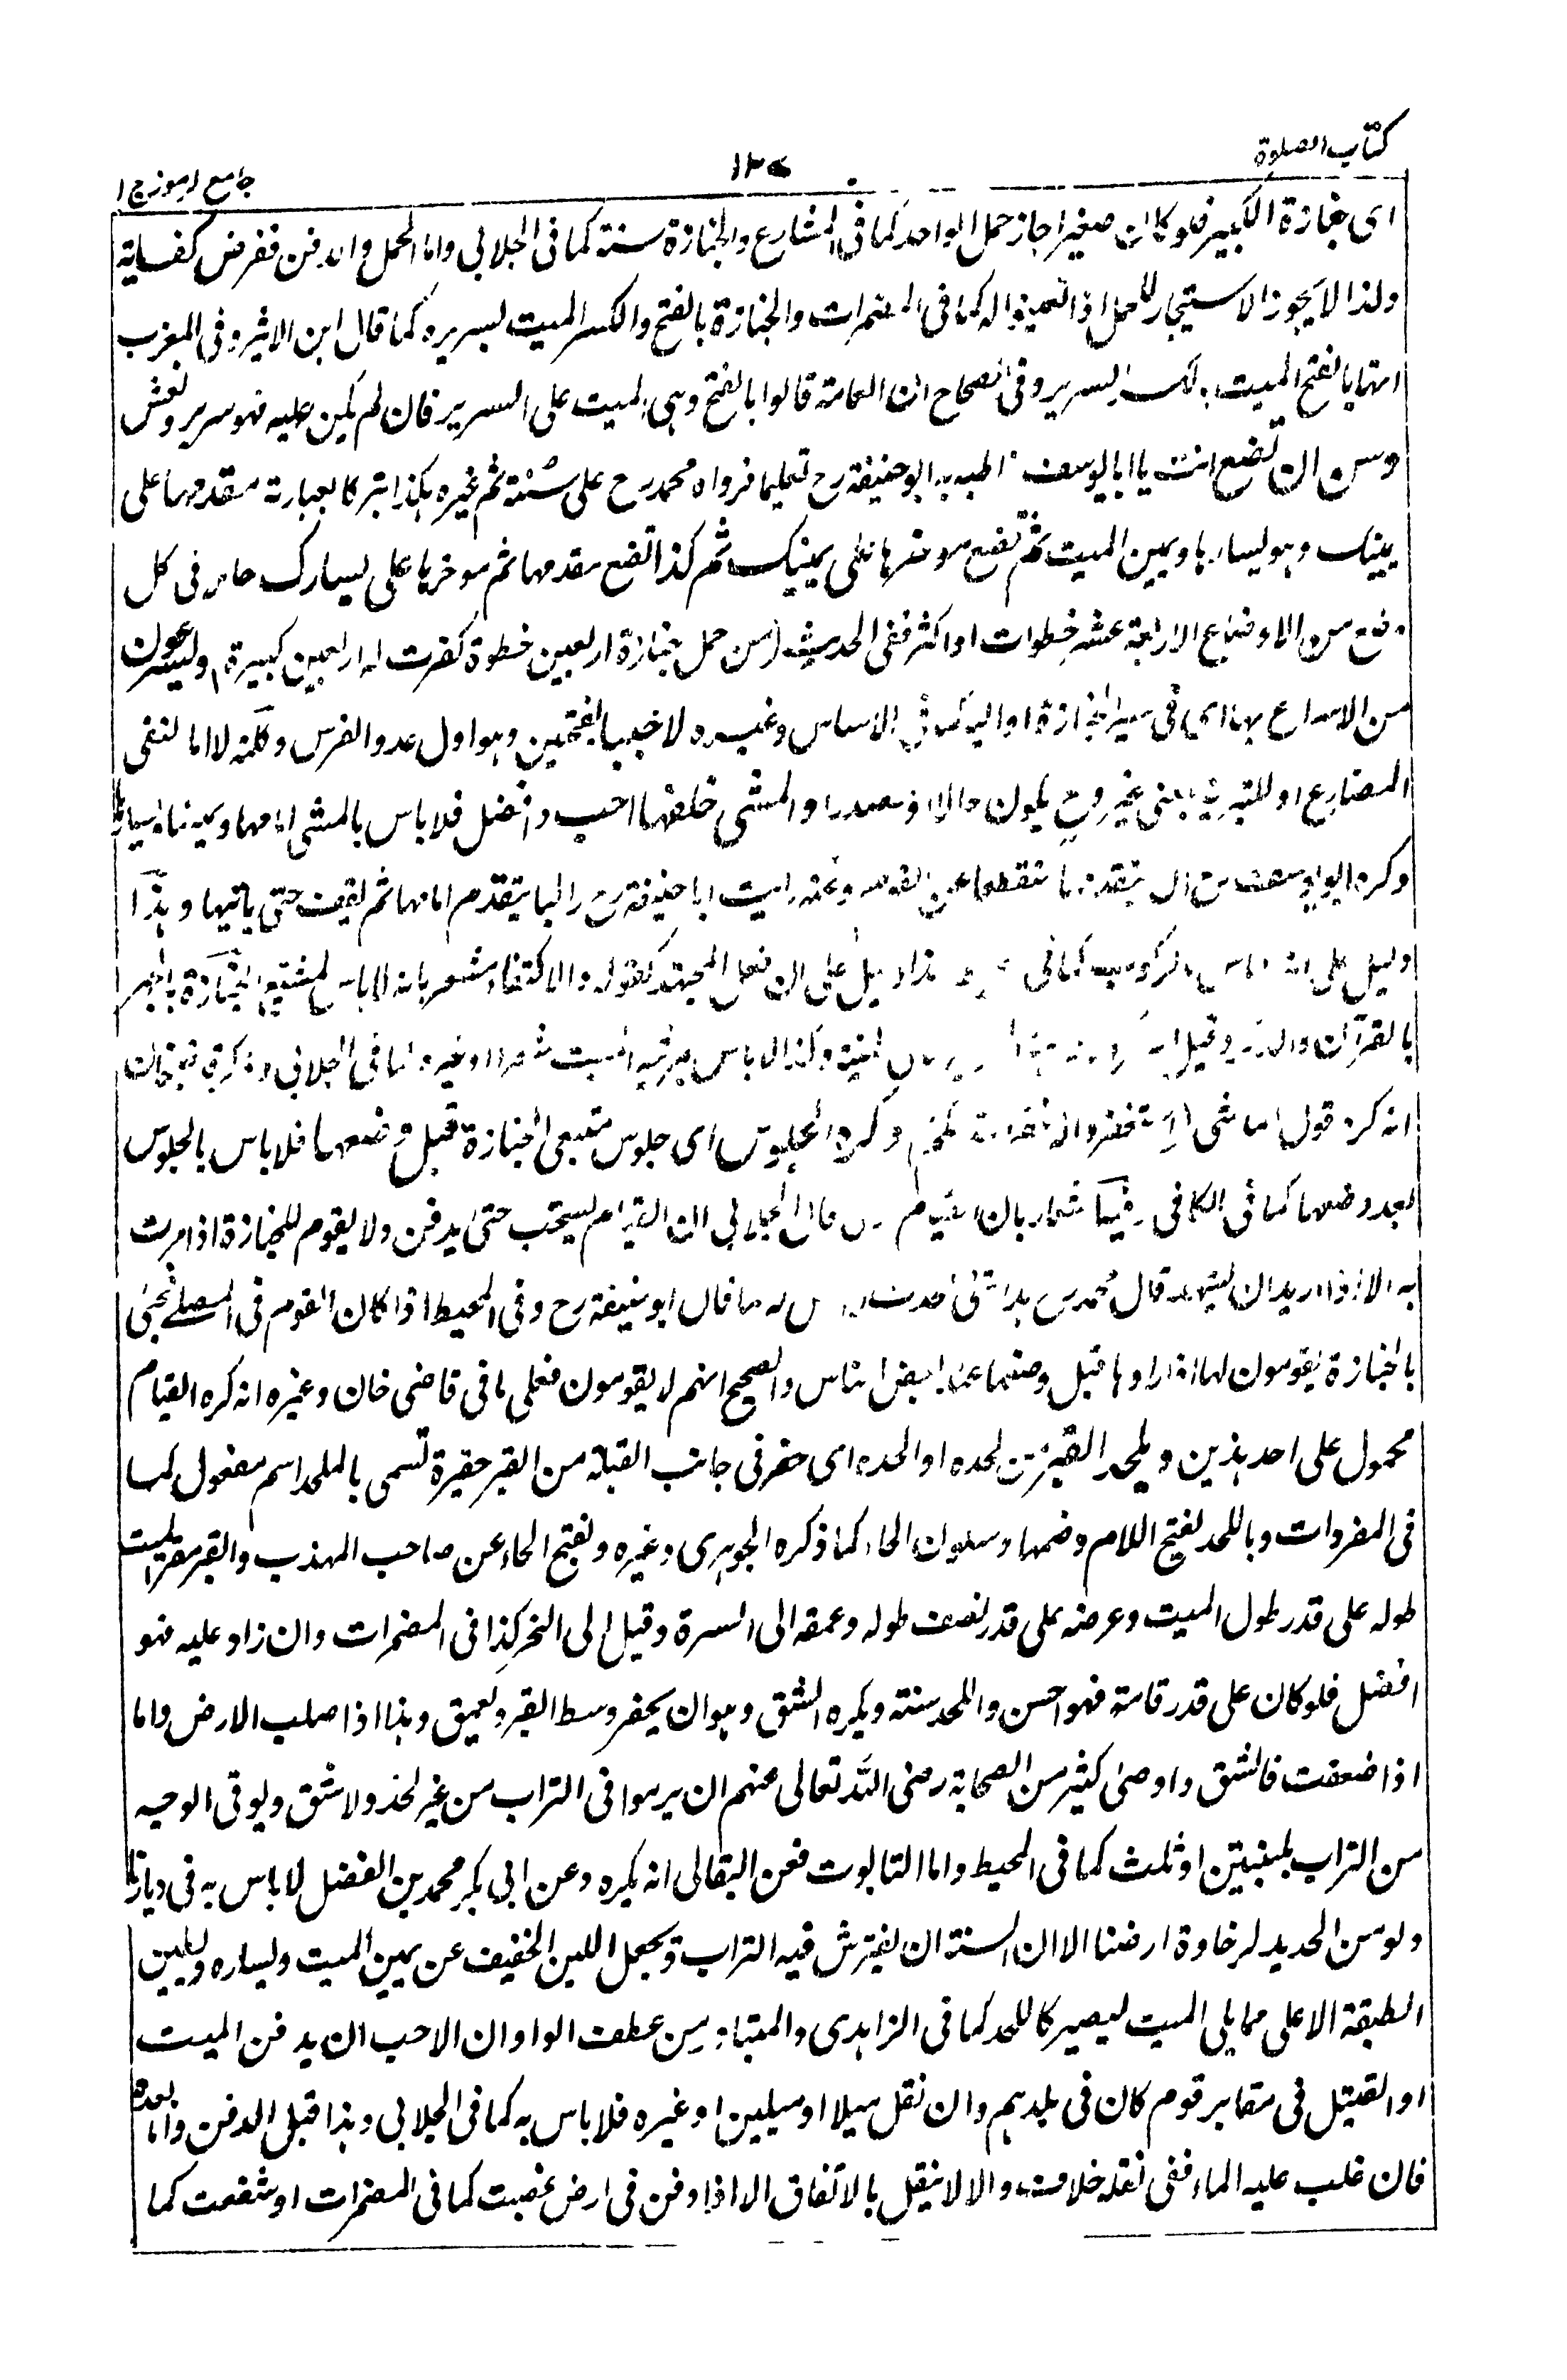 كتاب الصلوة
١٣٠
جامع الرموز ج ١
اى جنازة الكبير فلو كان صغيرا جاز حمل الواحد كما فى المشارع والجنازة سنة كما فى الجلابى واما الحمل والدفن ففرض كفاية
ولذا لا يجوز الاستيجار للحمل اذا تعينوا له كما فى المضمرات والجنازة بالفتح والكسر الميت بسريره كما قال ابن الاثير وفى المغرب
انها بالفتح الميت وبالكسر السرير وفى الصحاح ان العامة قالوا بالفتح وهى الميت على السرير فان لم يكن عليه فهو سرير ونعش
وسن ان تضع انت يا ابا يوسف اطبه به ابو حنيفة رح تعليما فرواه محمد رح على سننه ثم غيره هكذا تبركا بعبارته مقدمها على
يمينك وهو يسارها ويمين الميت ثم تضع موخرها على يمينك ثم كذا تضع مقدمها ثم موخرها على يسارك حامل فى كل
وضع من الاوضاع الاربعة عشر خطوات او اكثر ففى الحديث (من حمل جنازة اربعين خطوة كفرت له اربعين كبيرة) ويسرعون
من الاسراع بها اى فى سير الجنازة او اليه كما فى الاساس وغيره لا خببا بفتحتين وهو اول عدو الفرس وكلمة لا اما لنفى
المضارع او للتبرية بمعنى غير وح يكون حالا او مصدرا والمشى خلفها احب وافضل فلا باس بالمشى امامها ويمينها ويسارها
وكره ابو يوسف رح ان يتقدمها منقطعا عن القوم وعنه رايت ابا حنيفة رح راكبا يتقدم امامها ثم يقف حتى ياتيها وهذا
دليل على انه لا باس بالركوب كما فى هذا دليل على ان فعل المجتهد كقوله والاكتفاء مشعر بانه لا باس لمشيع الجنازة بالجهر
بالقرآن والذكر وقيل انه وكذا لا باس بمرثية الميت شعرا او غيره كما فى الجلابى وذكر قاضيخان
انه كره قول الماشى استغفروا له غفر الله لكم وكره الجلوس اى جلوس متبعى الجنازة قبل وضعها فلا باس بالجلوس
بعد وضعها كما فى الكافى وفيه اشعار بان القيام قال الجلابى ان القيام يستحب حتى يدفن ولا يقوم للجنازة اذا مرت
به الا اذا اريد ان يشهد قال محمد رح ما قال ابو حنيفة رح وفى المحيط اذا كان القوم فى المصلى فجئ
بالجنازة يقومون لها اذا راوها قبل وضعها عند بعض الناس والصحيح انهم لا يقومون فعلى ما فى قاضى خان وغيره انه كره القيام
محمول على احد هذين ويلحد القبر من لحده او الحده اى حفر فى جانب القبلة من القبر حفيرة تسمى بالملحد اسم مفعول كما
فى المفردات وباللحد بفتح اللام وضمها وسكون الحاء كما ذكره الجوهرى وغيره وبفتح الحاء عن صاحب المهذب والقبر مقر الميت
طوله على قدر طول الميت وعرضه على قدر نصف طوله وعمقه الى السرة وقيل الى النحر كذا فى المضمرات وان زاد عليه فهو
افضل فلو كان على قدر قامة فهو احسن واللحد سنة ويكره الشق وهو ان يحفر وسط القبر ويعمق وهذا اذا صلب الارض واما
اذا ضعفت فالشق واوصى كثير من الصحابة رضى الله تعالى عنهم ان يرموا فى التراب من غير لحد ولا شق ويوقى الوجه
من التراب بلبنتين او ثلث كما فى المحيط واما التابوت فعن البقالى انه يكره وعن ابى بكر محمد بن الفضل لا باس به فى ديارنا
ولو من الحديد لرخاوة ارضنا الا ان السنة ان يفترش فيه التراب ويجعل اللبن الخفيف عن يمين الميت ويساره ويطين
الطبقة الاعلى مما يلى الميت ليصير كاللحد كما فى الزاهدى والمتبادر من عطف الواو ان الاحب ان يدفن الميت
او القتيل فى مقابر قوم كان فى بلدهم وان نقل ميلا او ميلين او غيره فلا باس به كما فى الجلابى وهذا قبل الدفن واما بعده
فان غلب عليه الماء ففى نقله خلاف والا لا ينقل بالاتفاق الا اذا دفن فى ارض غصبت كما فى المضمرات او شفعت كما